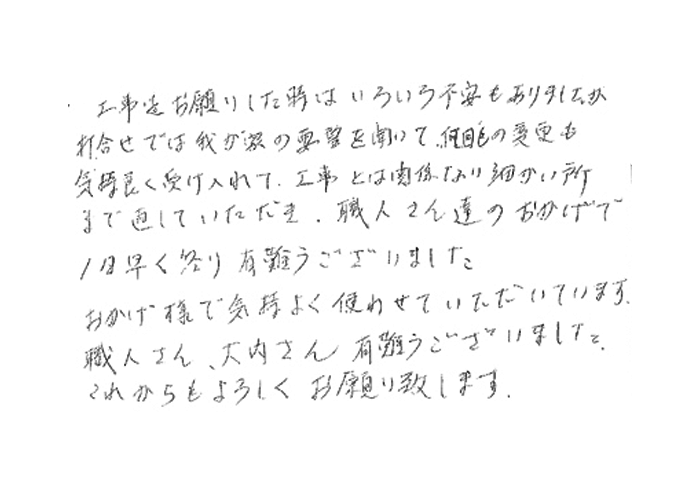 工事をお願いした時はいろいろ不安もありましたが
打合せでは我が家の要望を聞いて、何回もの変更も
気持良く受け入れて、工事とは関係ない細かい所
まで直していただき、職人さん達のおかげで
1日早く終り有難うございました
おかげ様で気持よく使わせていただいています。
職人さん、大内さん有難うございました。
これからもよろしくお願い致します。